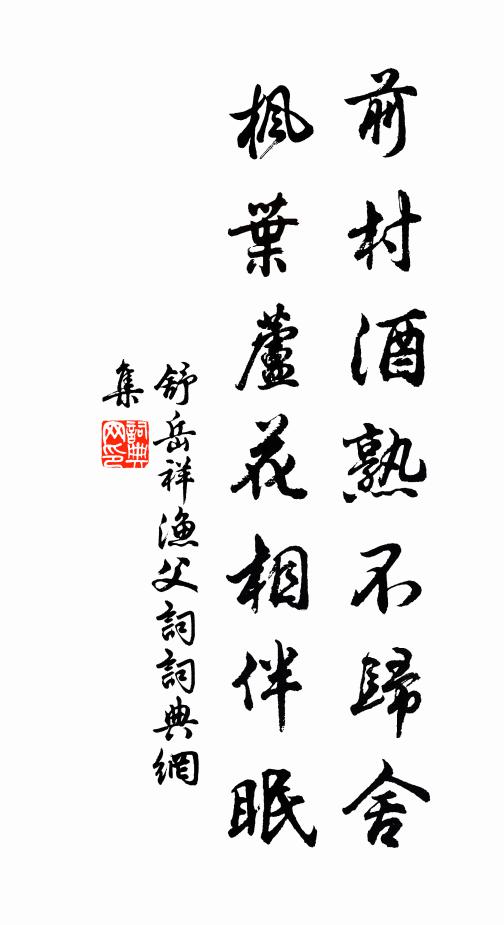 前村酒熟不歸舍
楓葉蘆花相伴眠
舒岳祥漁父詞詞典網
集
詞典
网印